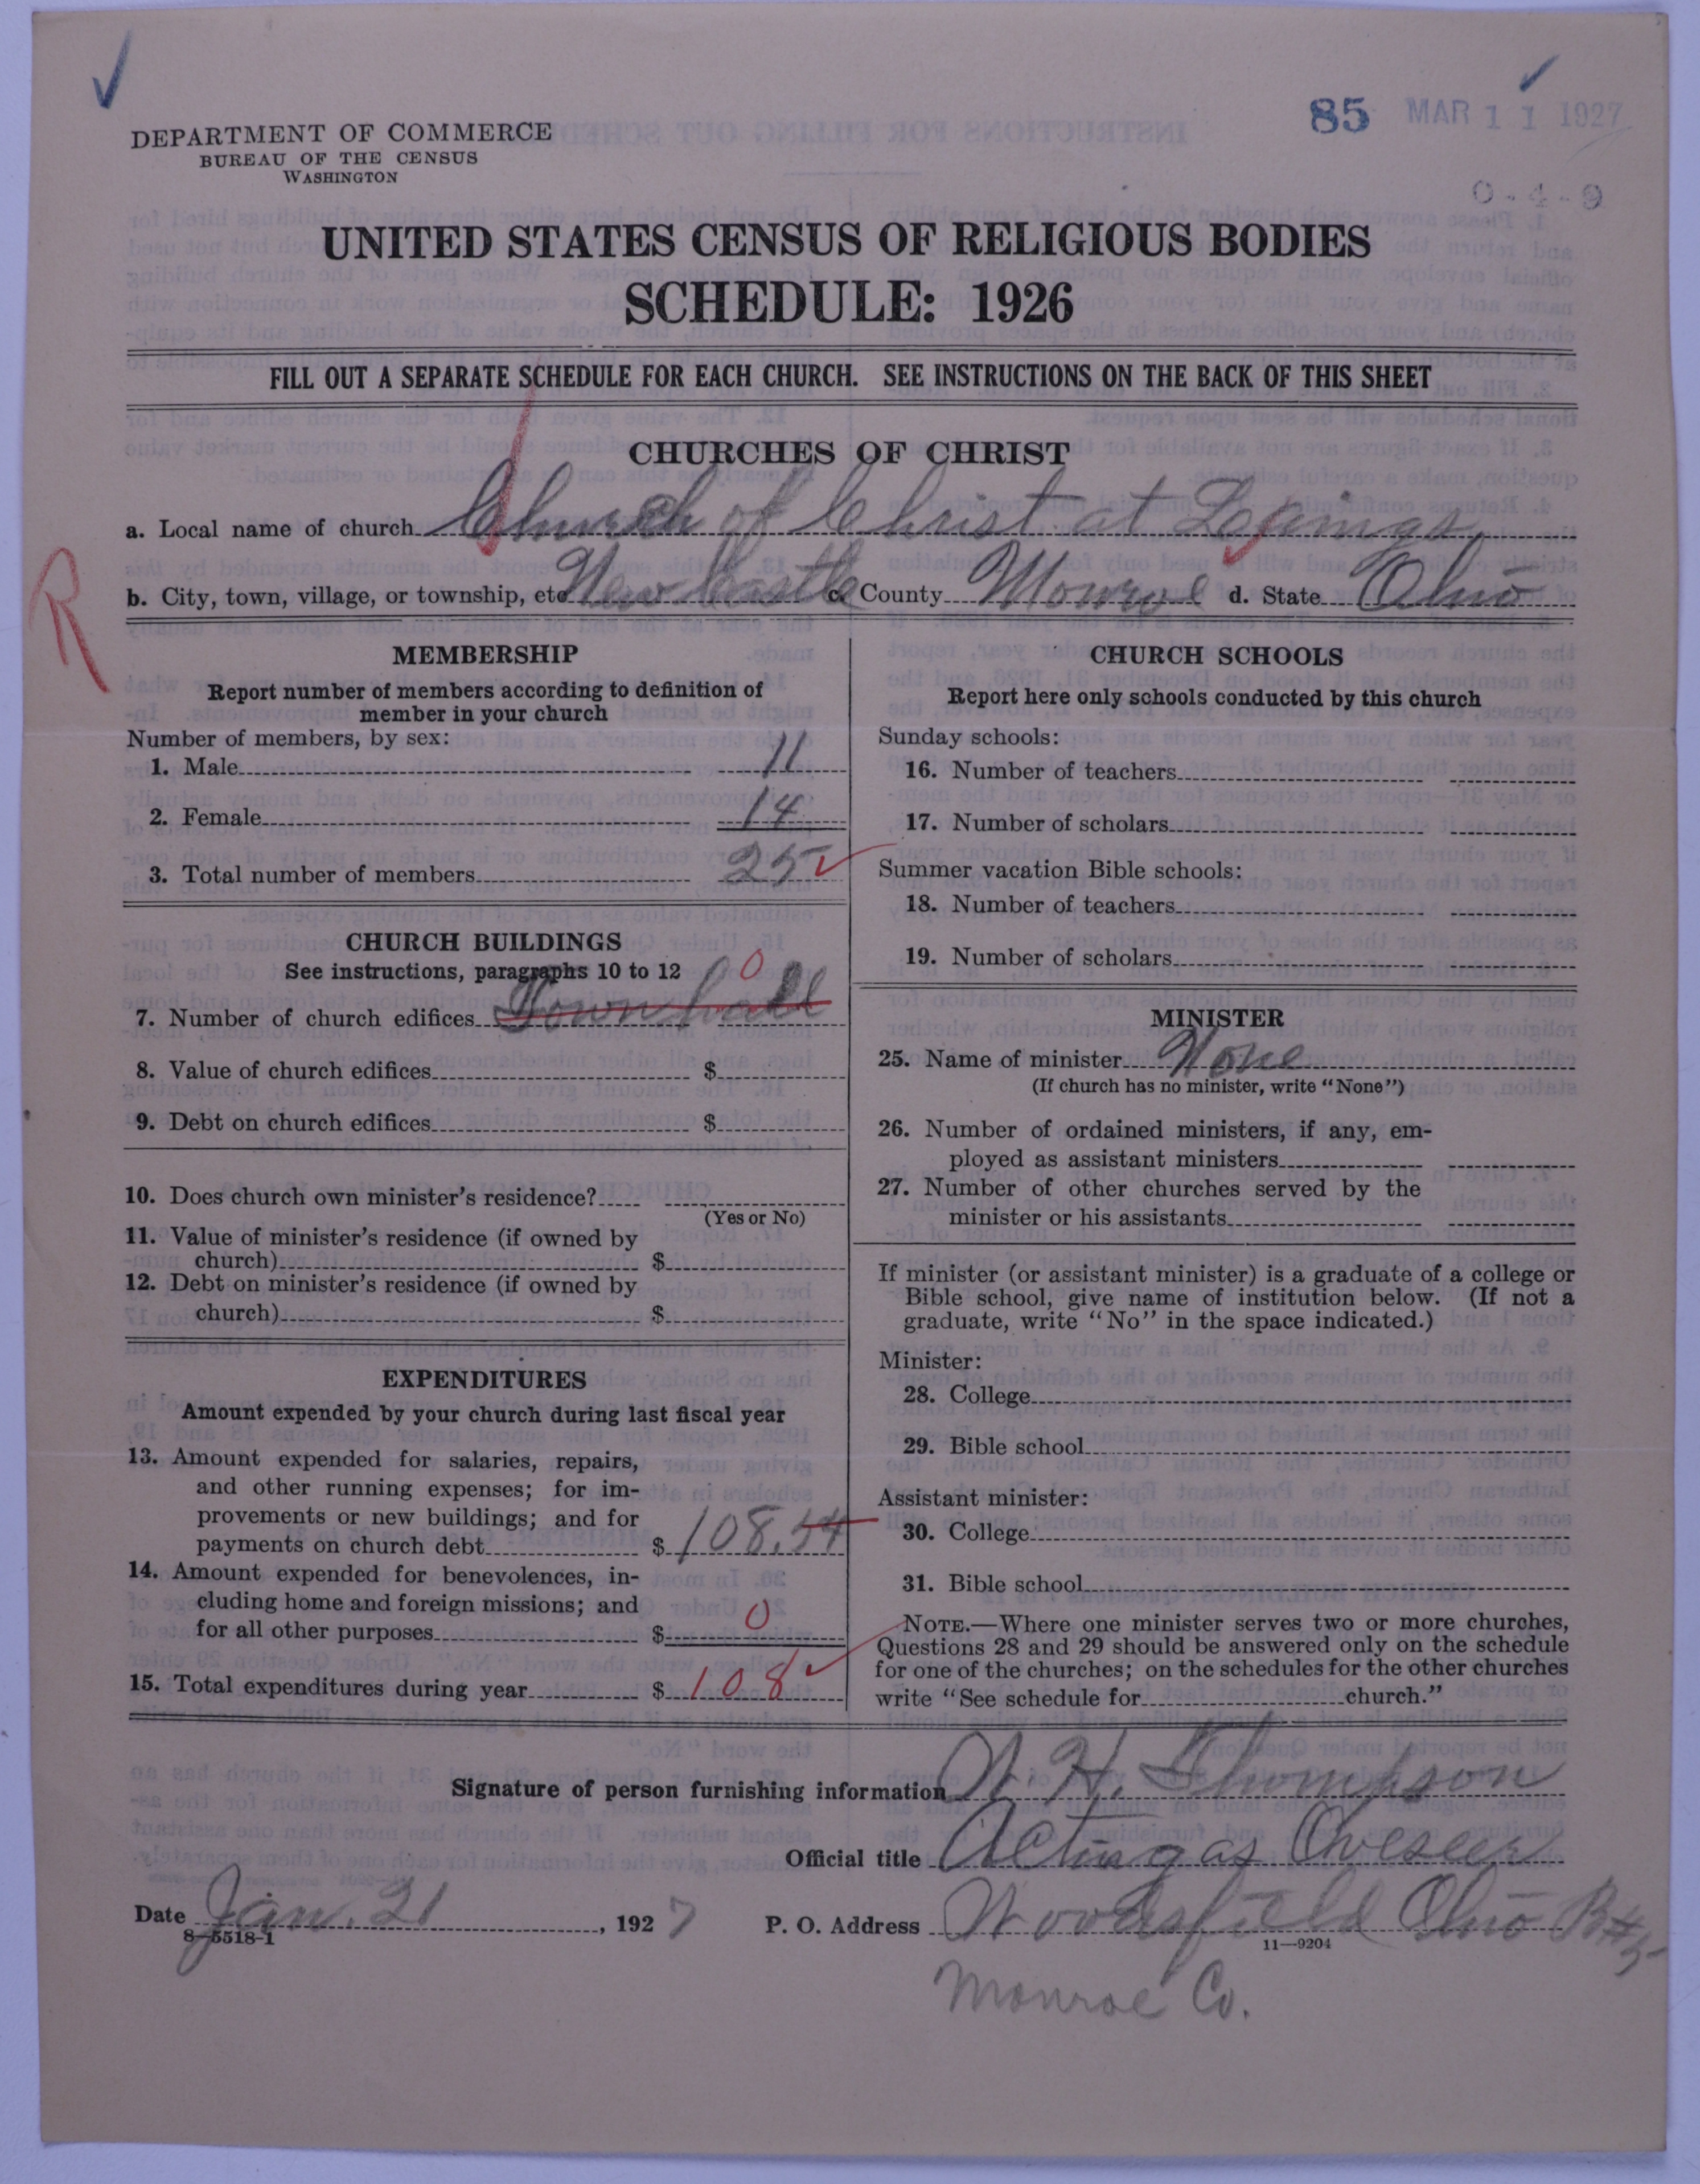 85 MAR 11 1927
DEPARTMENT OF COMMERCE
BUREAU OF THE CENSUS
WASHINGTON
0-4-9
UNITED STATES CENSUS OF RELIGIOUS BODIES
SCHEDULE: 1926
FILL OUT A SEPARATE SCHEDULE FOR EACH CHURCH. SEE INSTRUCTIONS ON THE BACK OF THIS SHEET
CHURCHES OF CHRIST
a. Local name of church Church of Christ at
R
b. City, town, village, or township, etc. New Castle c. County Monroe d. State Ohio
MEMBERSHIP
Report number of members according to definition of
member in your church
Number of members, by sex:
1. Male 11
2. Female 14
3. Total number of members 25
CHURCH BUILDINGS
See instructions, paragraphs 10 to 12 0
7. Number of church edifices Town hall
8. Value of church edifices $
9. Debt on church edifices $
10. Does church own minister's residence?
(Yes or No)
11. Value of minister's residence (if owned by
church) $
12. Debt on minister's residence (if owned by
church) $
EXPENDITURES
Amount expended by your church during last fiscal year
13. Amount expended for salaries, repairs,
and other running expenses; for im-
provements or new buildings; and for
payments on church debt $ 108.54
14. Amount expended for benevolences, in-
cluding home and foreign missions; and
for all other purposes $ 0
15. Total expenditures during year $ 108
CHURCH SCHOOLS
Report here only schools conducted by this church
Sunday schools:
16. Number of teachers
17. Number of scholars
Summer vacation Bible schools:
18. Number of teachers
19. Number of scholars
MINISTER
25. Name of minister None
(If church has no minister, write "None")
26. Number of ordained ministers, if any, em-
ployed as assistant ministers
27. Number of other churches served by the
minister or his assistants
If minister (or assistant minister) is a graduate of a college or
Bible school, give name of institution below. (If not a
graduate, write "No" in the space indicated.)
Minister:
28. College
29. Bible school
Assistant minister:
30. College
31. Bible school
NOTE.—Where one minister serves two or more churches,
Questions 28 and 29 should be answered only on the schedule
for one of the churches; on the schedules for the other churches
write "See schedule for church."
Signature of person furnishing information W. H. Thompson
Official title Acting as Oveseer
Date Jan. 21, 1927 P. O. Address Woodsfield Ohio R#5
8-5518-1
11-9204
Monroe Co.